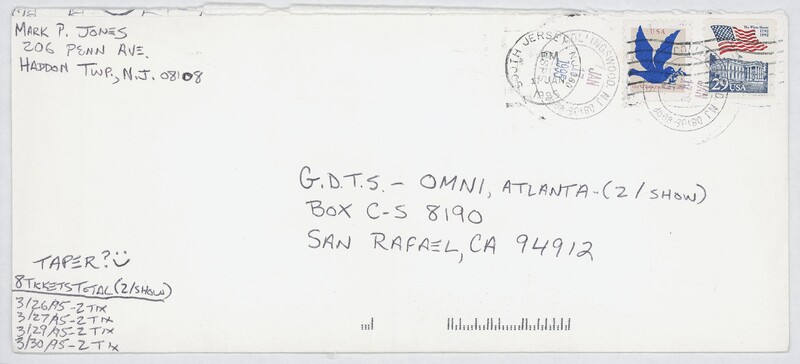 MARK P. JONES
206 PENN AVE.
HADDON TWP., N.J. 08108
SOUTH JERSEY
PM
JAN
1995
COLLINGSWOOD, NJ
JAN
1995
08108-9998
USA
The White House
29 USA
G.D.T.S. - OMNI, ATLANTA-(2/SHOW)
BOX C-S 8190
SAN RAFAEL, CA 94912
TAPER?
8 TICKETS TOTAL (2/SHOW)
3/26/95-2 TIX
3/27/95-2 TIX
3/29/95-2 TIX
3/30/95-2 TIX